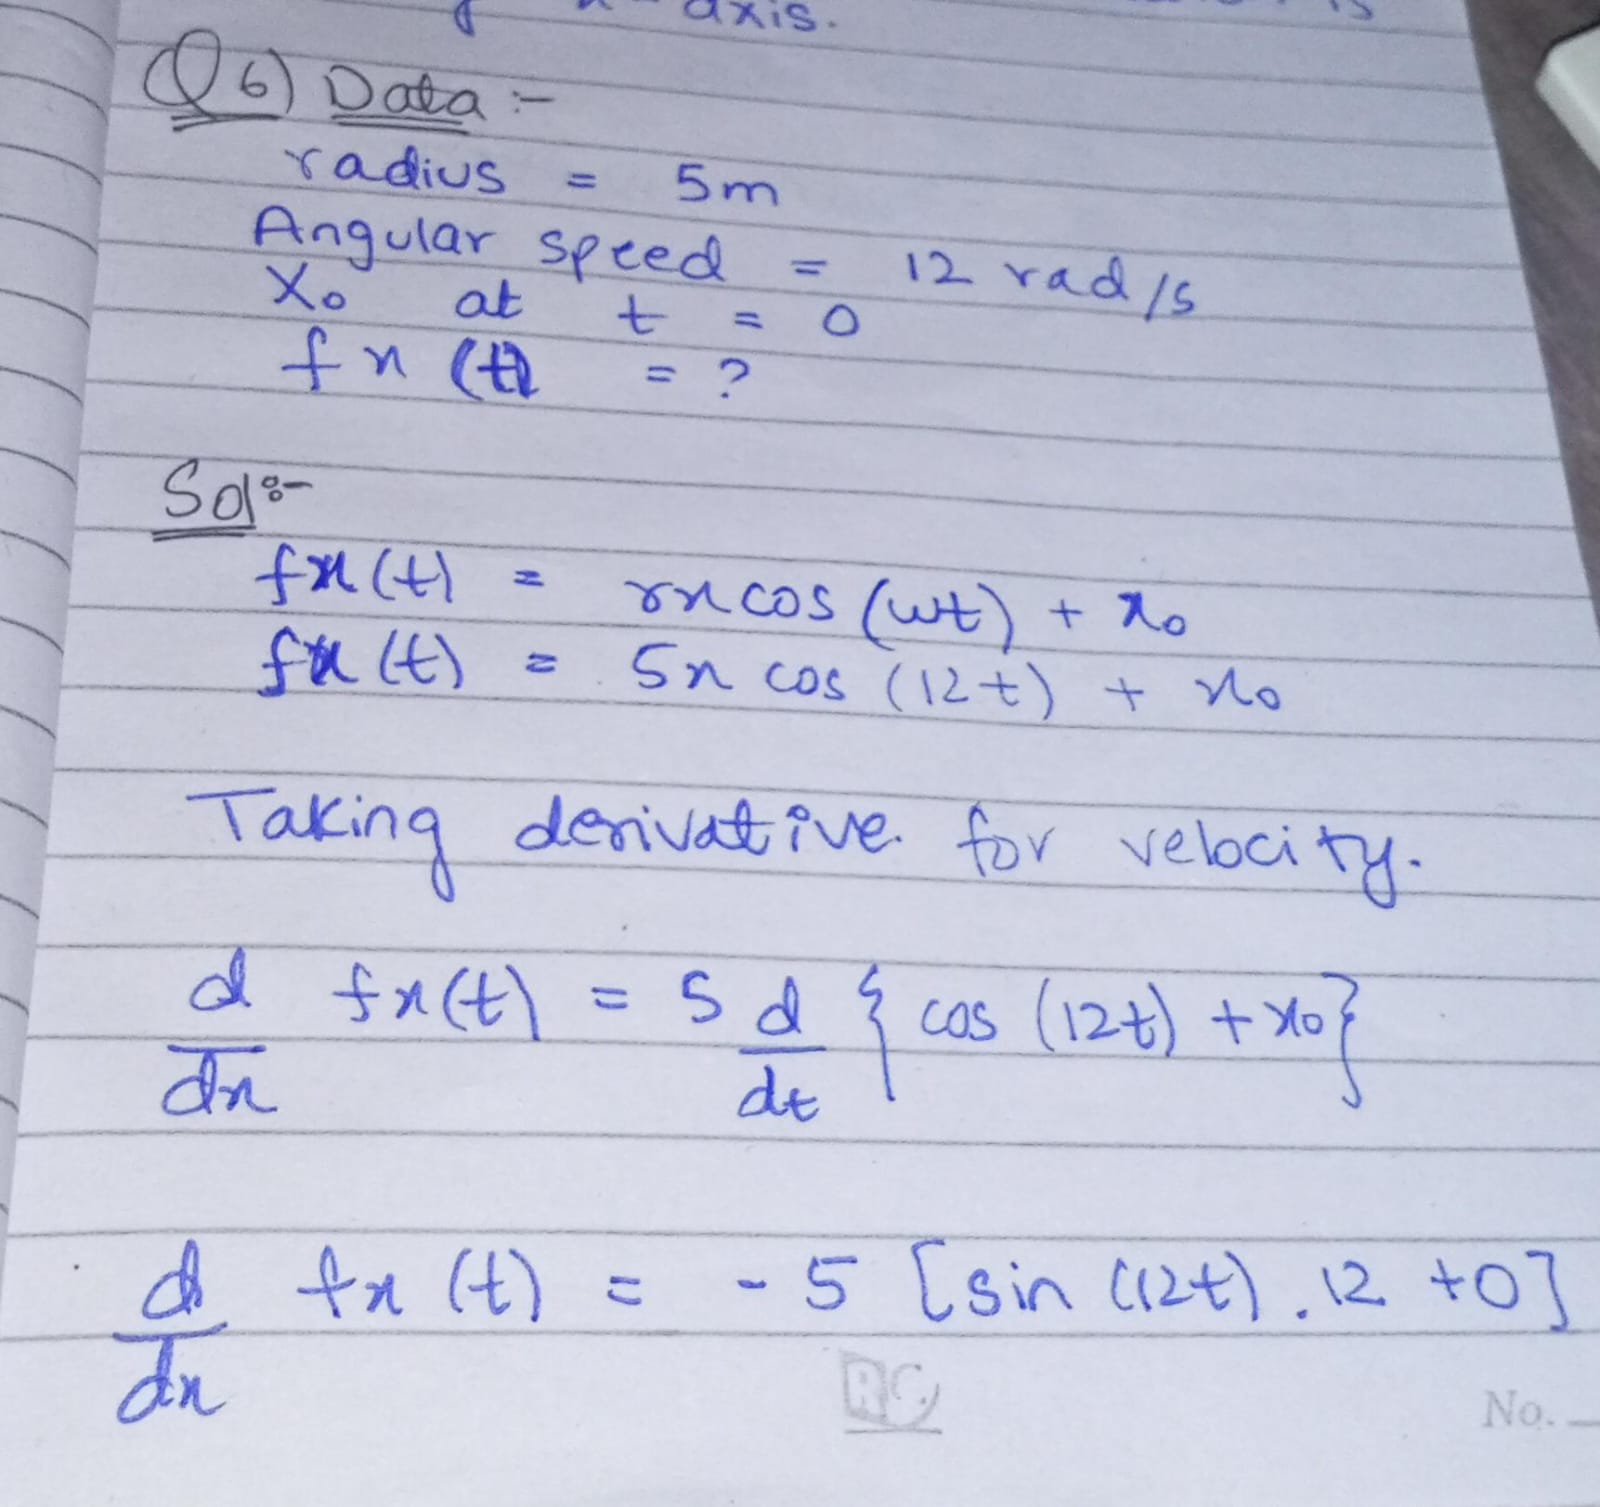 axis.
Q6) Data :-
radius = 5m
Angular speed = 12 rad/s
X₀ at t = 0
fx (t) = ?
Sol:-
fx(t) = rx cos (wt) + x₀
fx (t) = 5x cos (12t) + x₀
Taking derivative for velocity.
d/dx fx(t) = 5 d/dt { cos (12t) + x₀}
d/dx fx (t) = -5 [sin (12t) . 12 +0]
RC
No.